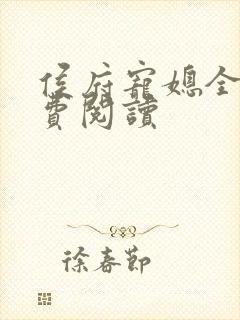 侯府寵媳全
費閱讀
徐春節